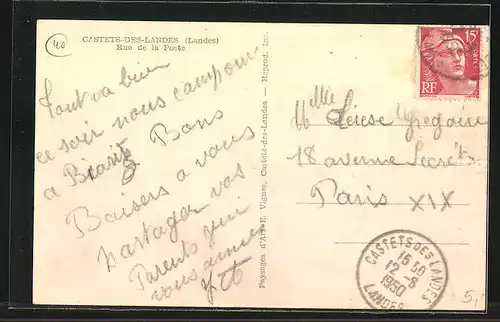 40
CASTETS-DES-LANDES (Landes)
Rue de la Poste
Tout va bien
ce soir nous campons
a Biarritz
Bons
Baisers a vous
partager vos
Parents qui
vous aiment
Paysages d'Art E. Vignes, Castets-des-Landes — Reprod. Int.
15F
RF
Mlle
18 avenue Secrétan
Paris XIX
CASTETS DES LANDES
15 50
12-8
1950
LANDES
5,-